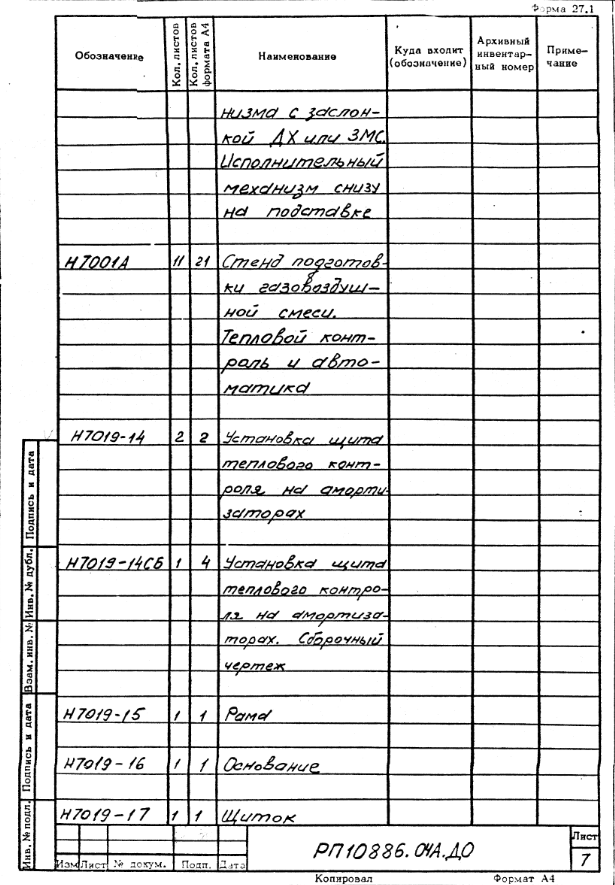 Форма 27.1
Обозначение Кол. листов Кол. листов формата А4 Наименование Куда входит (обозначение) Архивный инвентарный номер Примечание
низма с заслон-
кой ДХ или ЗМС.
Исполнительный
механизм снизу
на подставке
Н7001А 11 21 Стенд подготов-
ки газовоздуш-
ной смеси.
Тепловой конт-
роль и авто-
матика
Н7019-14 2 2 Установка щита
теплового конт-
роля на аморти-
заторах
Н7019-14СБ 1 4 Установка щита
теплового контро-
ля на амортиза-
торах. Сборочный
чертеж
Н7019-15 1 1 Рама
Н7019-16 1 1 Основание
Н7019-17 1 1 Щиток
Инв. № подл. Подпись и дата Взам. инв. № Инв. № дубл. Подпись и дата
РП10886.04А.ДО
Лист
7
Изм Лист № докум. Подп. Дата
Копировал Формат А4